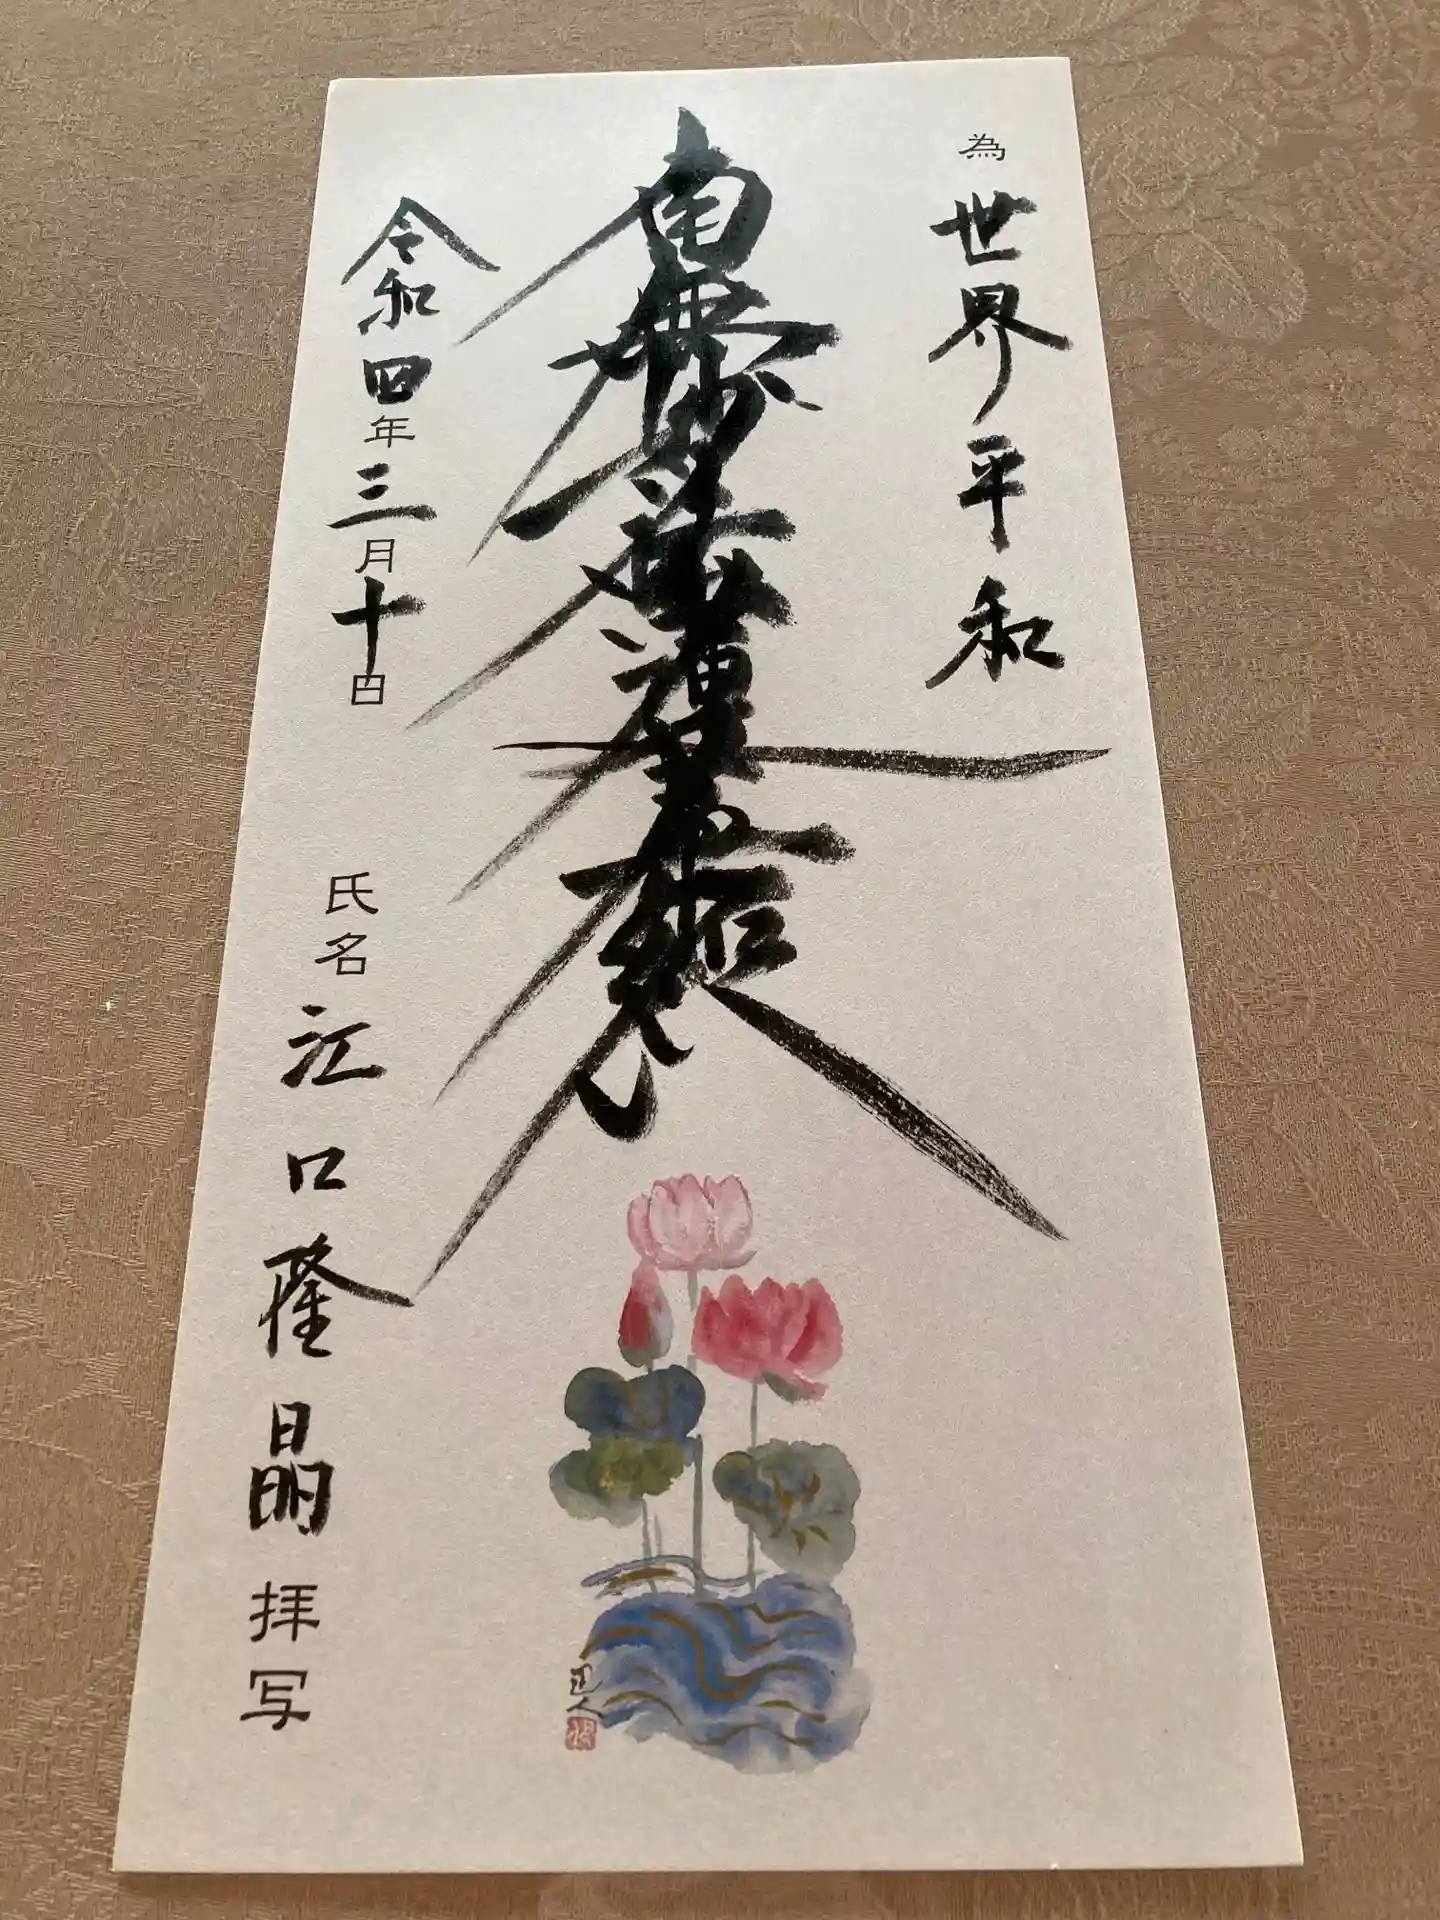 為世界平和
南無妙法蓮華経
令和四年三月十日
氏名 江口隆晶 拝写